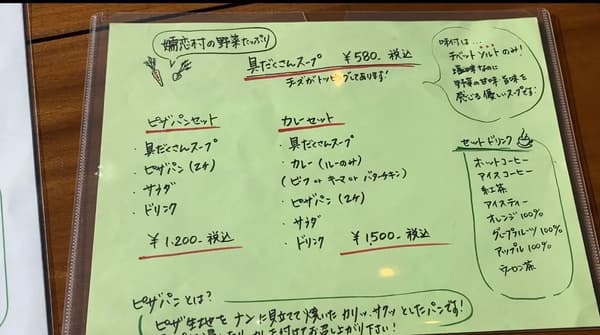 嬬恋村の野菜たっぷり
具だくさんスープ ¥580-税込
チーズがトッピングしてあります!
味付は…
チベットソルトのみ!
塩味なのに
野菜の甘味・旨味を
感じる優しいスープです!
ピザパンセット
・具だくさんスープ
・ピザパン(2ケ)
・サラダ
・ドリンク
¥1,200-税込
カレーセット
・具だくさんスープ
・カレー(ルーのみ)
(ビーフ or キーマ or バターチキン)
・ピザパン(2ケ)
・サラダ
・ドリンク
¥1,500-税込
セットドリンク
ホットコーヒー
アイスコーヒー
紅茶
アイスティー
オレンジ100%
グレープフルーツ100%
アップル100%
ウーロン茶
ピザパンとは?
ピザ生地をナンに見立てて焼いたカリッ、サクッとしたパンです!
付けてお召し上がり下さい!